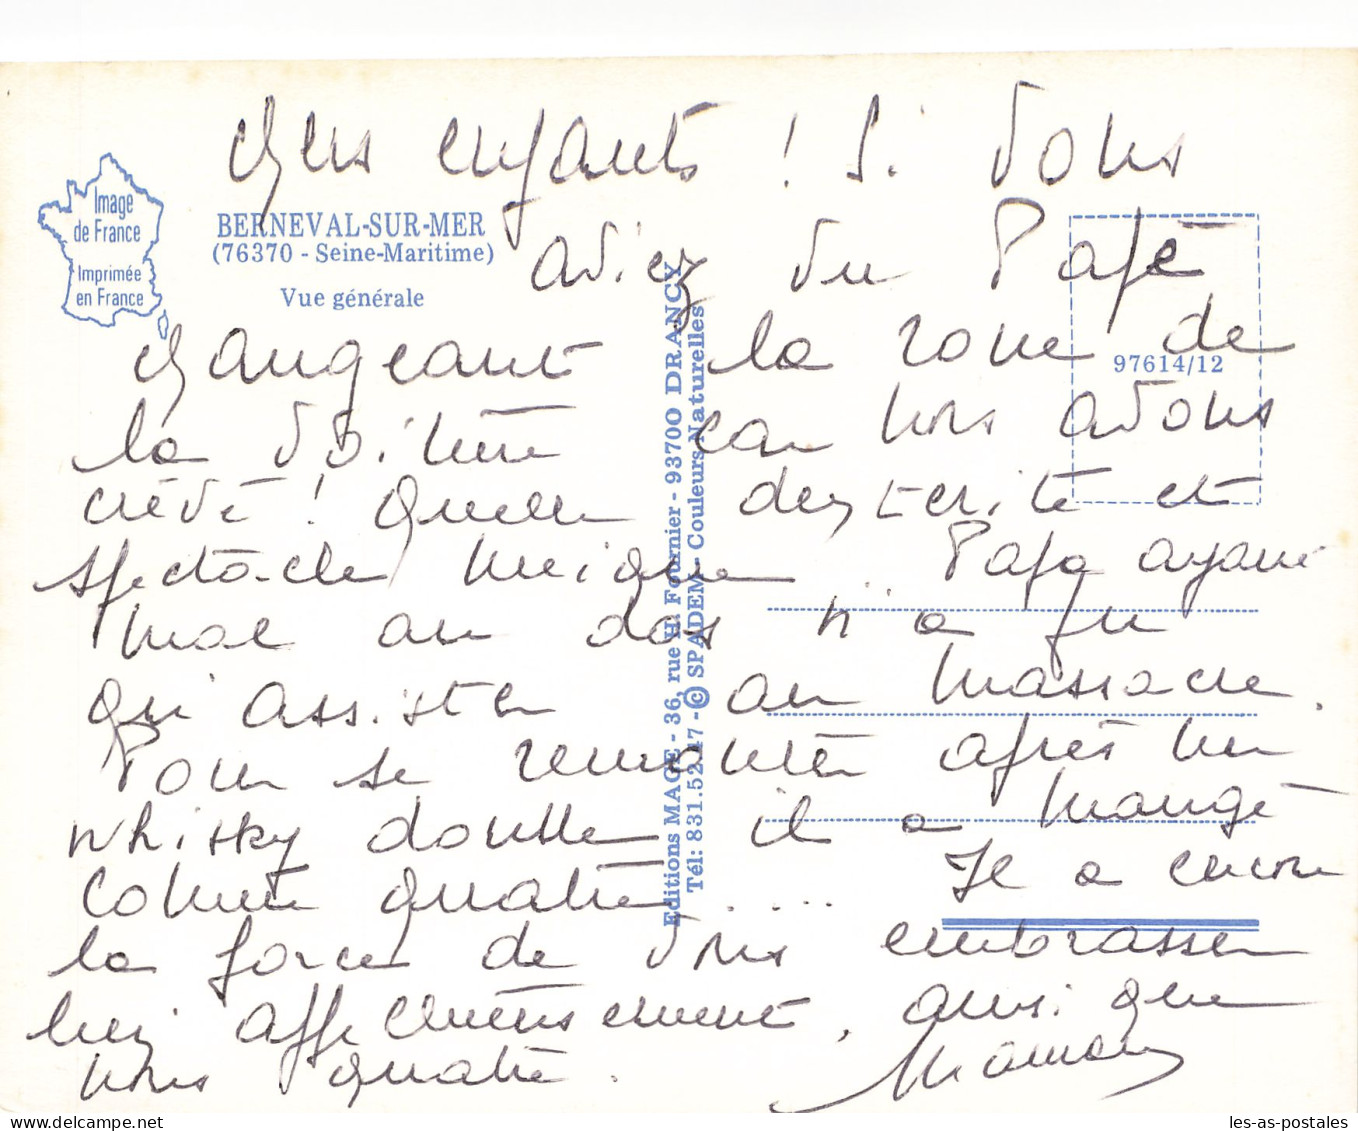 Image
de France
Imprimée
en France
BERNEVAL-SUR-MER
(76370 - Seine-Maritime)
Vue générale
97614/12
Editions MAGE - 36, rue H. Fournier - 93700 DRANCY
Tél: 831.52.47 - © SPADEM - Couleurs Naturelles
Chers enfants ! Si vous
aviez vu Papé
changeant la roue de
la voiture car nous avons
crevé ! Quelle dextérité et
spectacle unique .. Papa ayant
mal au dos n'a pu
qu'assister au massacre.
Pour se remonter après un
whisky double il a mangé
comme quatre ..... Il a encore
la force de vous embrasser
bien affectueusement, ainsi que
nous quatre.
Maman
les-as-postales